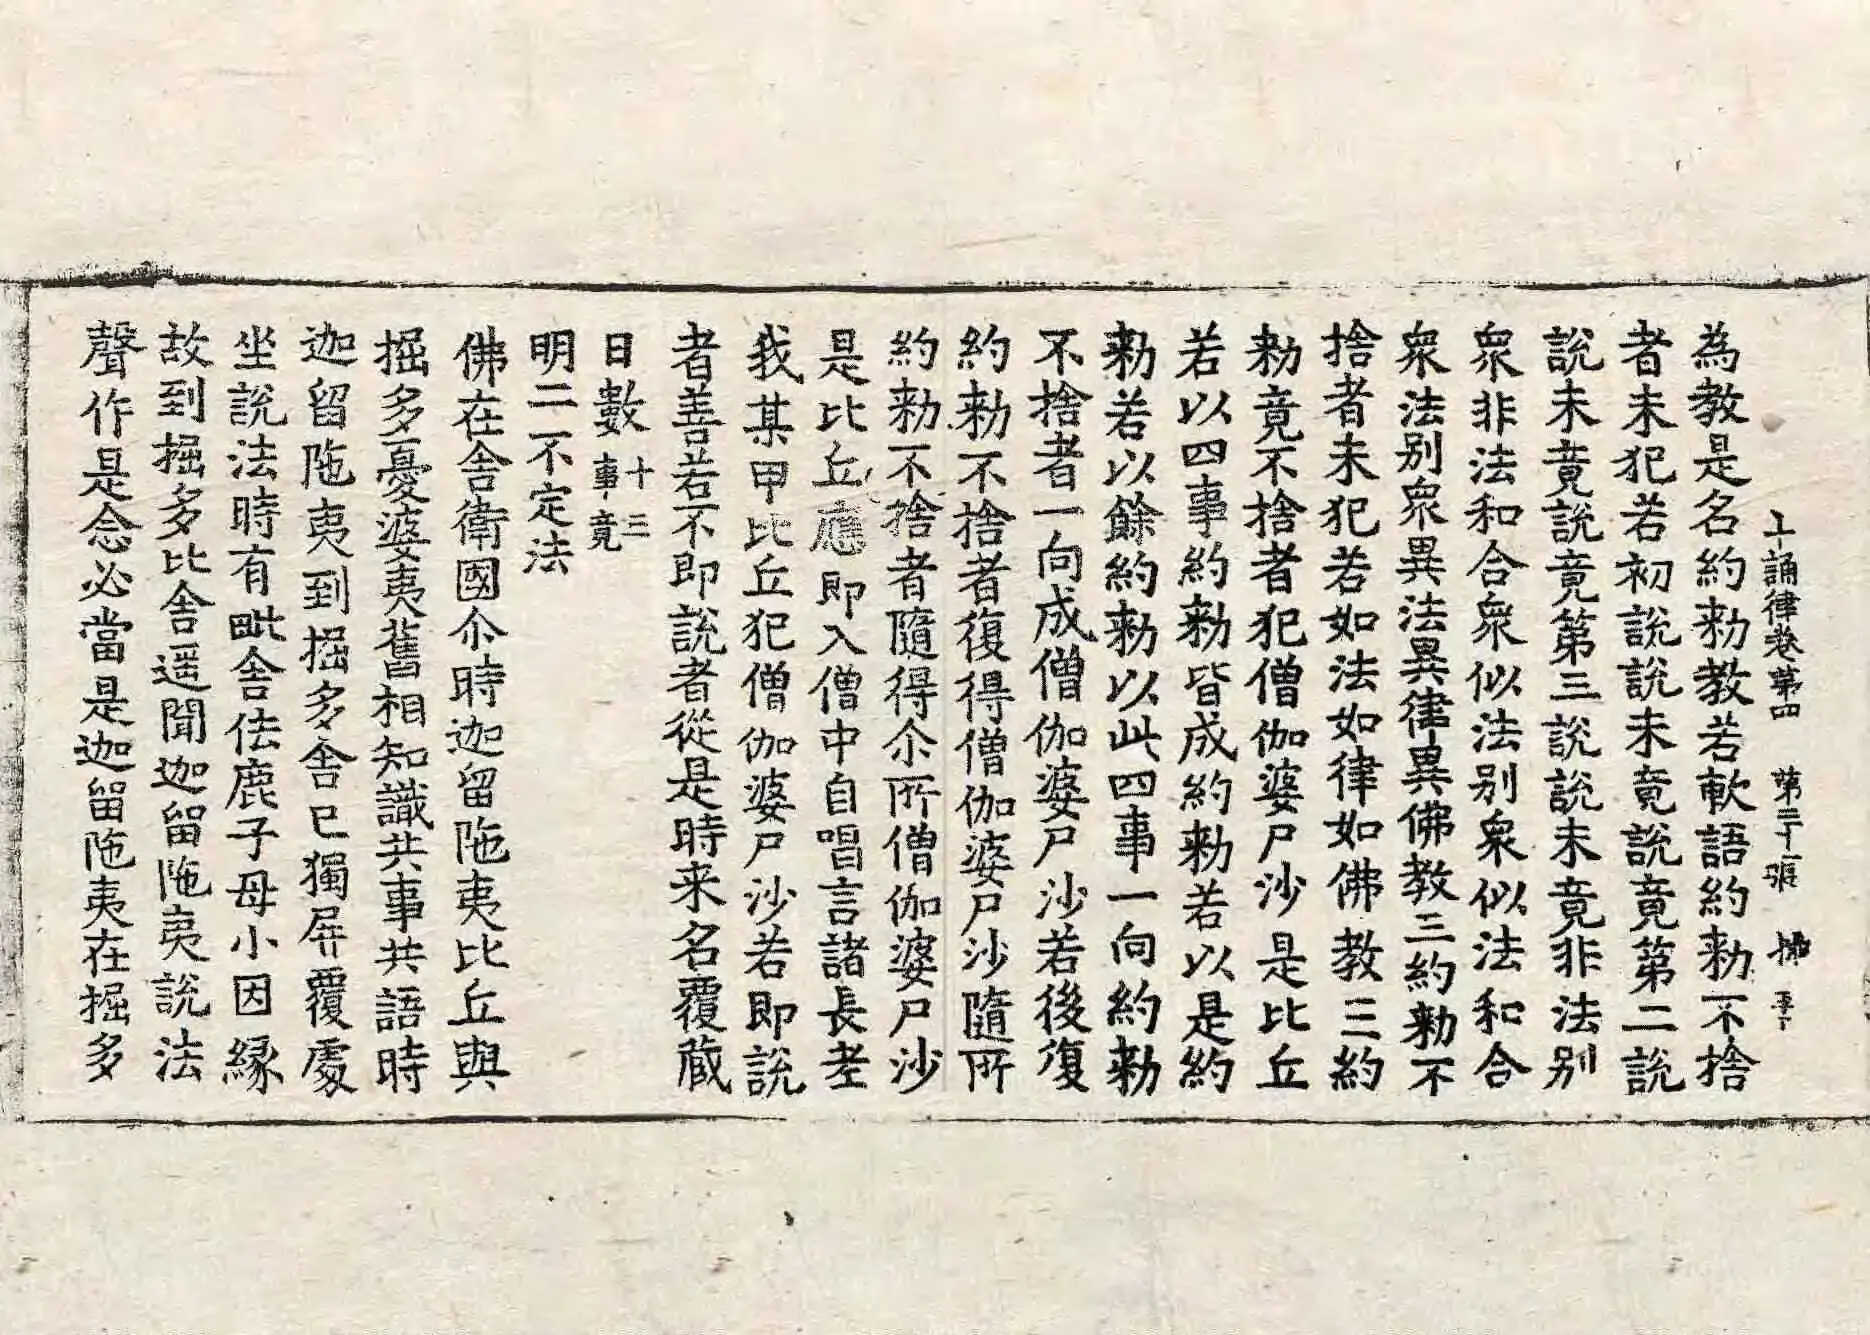 十誦律卷第四 第三十一張 㧞 事
為教是名約勑教若軟語約勑不捨
者未犯若初說說未竟說竟第二說
說未竟說竟第三說說未竟非法別
衆非法和合衆似法別衆似法和合
衆法別衆異法異律異佛教三約勑不
捨者未犯若如法如律如佛教三約
勑竟不捨者犯僧伽婆尸沙是比丘
若以四事約勑皆成約勑若以是約
勑若以餘約勑以此四事一向約勑
不捨者一向成僧伽婆尸沙若後復
約勑不捨者復得僧伽婆尸沙隨所
約勑不捨者隨得尒所僧伽婆尸沙
是比丘應即入僧中自唱言諸長老
我某甲比丘犯僧伽婆尸沙若即說
者善若不即說者從是時来名覆藏
日數十三事竟
明二不定法
佛在舍衛國尒時迦留陁夷比丘與
掘多憂婆夷舊相知識共事共語時
迦留陁夷到掘多舍已獨屏覆處
坐說法時有毗舍佉鹿子母小因緣
故到掘多比舍遥聞迦留陁夷說法
聲作是念必當是迦留陁夷在掘多